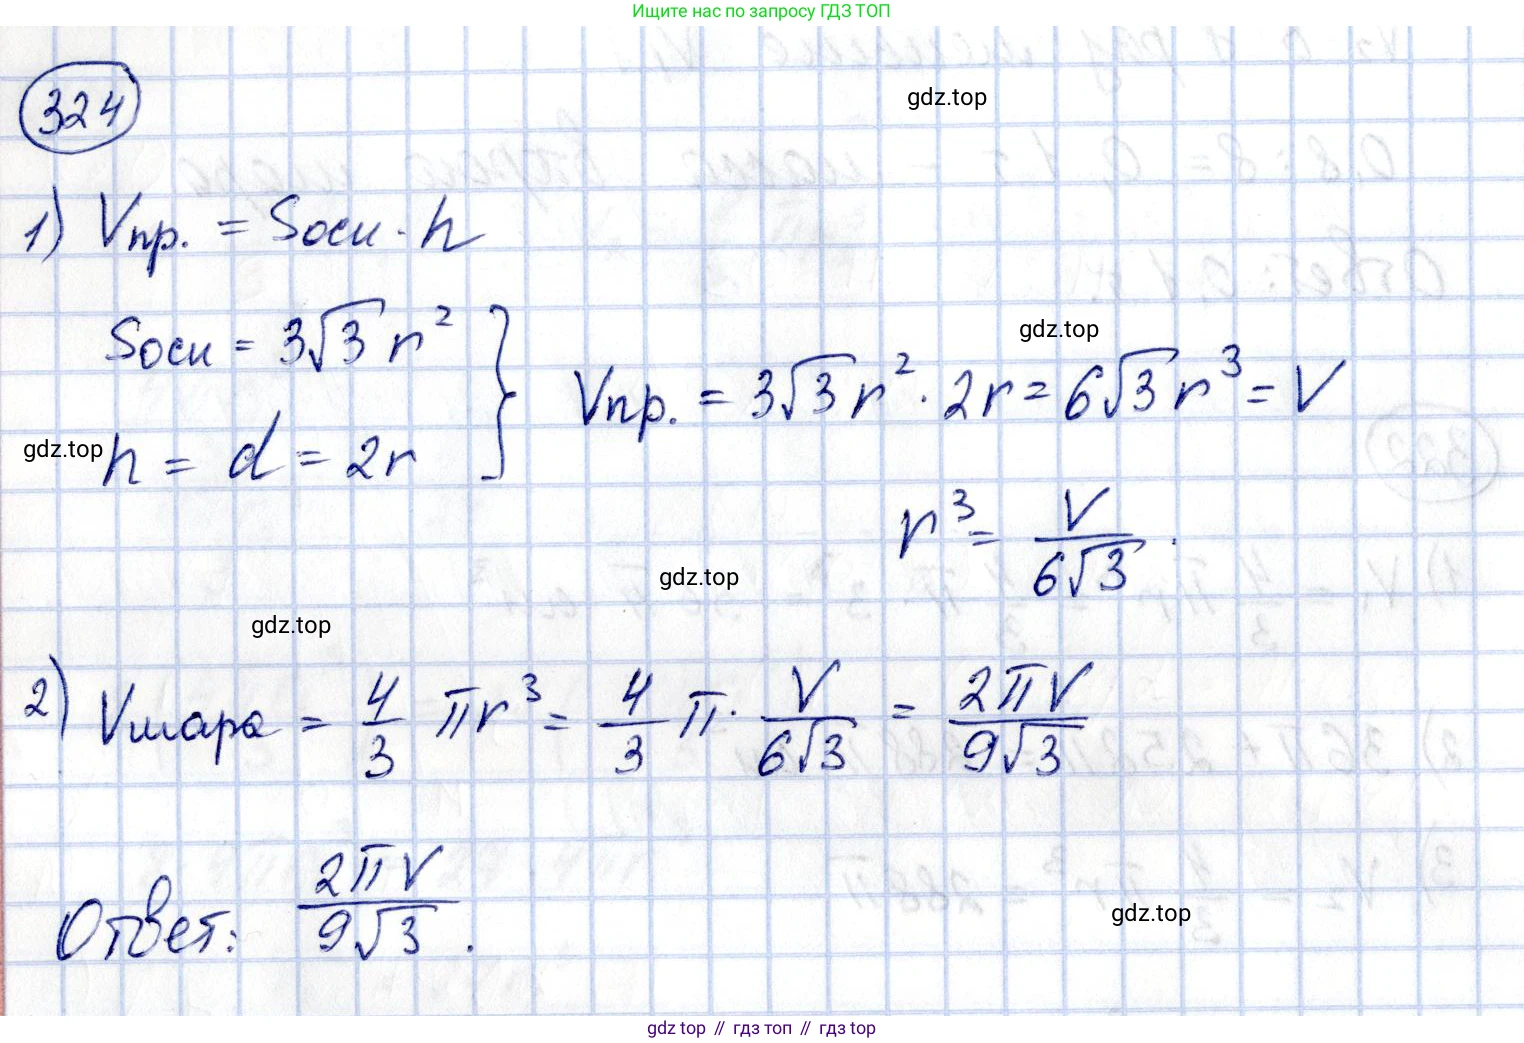 Ищите нас по запросу ГДЗ ТОП
324
gdz.top
1) Vпр. = Sосн · h
Sосн = 3√3 r²
gdz.top
Vпр. = 3√3 r² · 2r = 6√3 r³ = V
gdz.top
h = d = 2r
r³ = V/(6√3).
gdz.top
gdz.top
2) Vшара = 4/3 πr³ = 4/3 π · V/(6√3) = 2πV/(9√3)
Ответ: 2πV/(9√3).
gdz.top
gdz top // гдз топ // гдз top